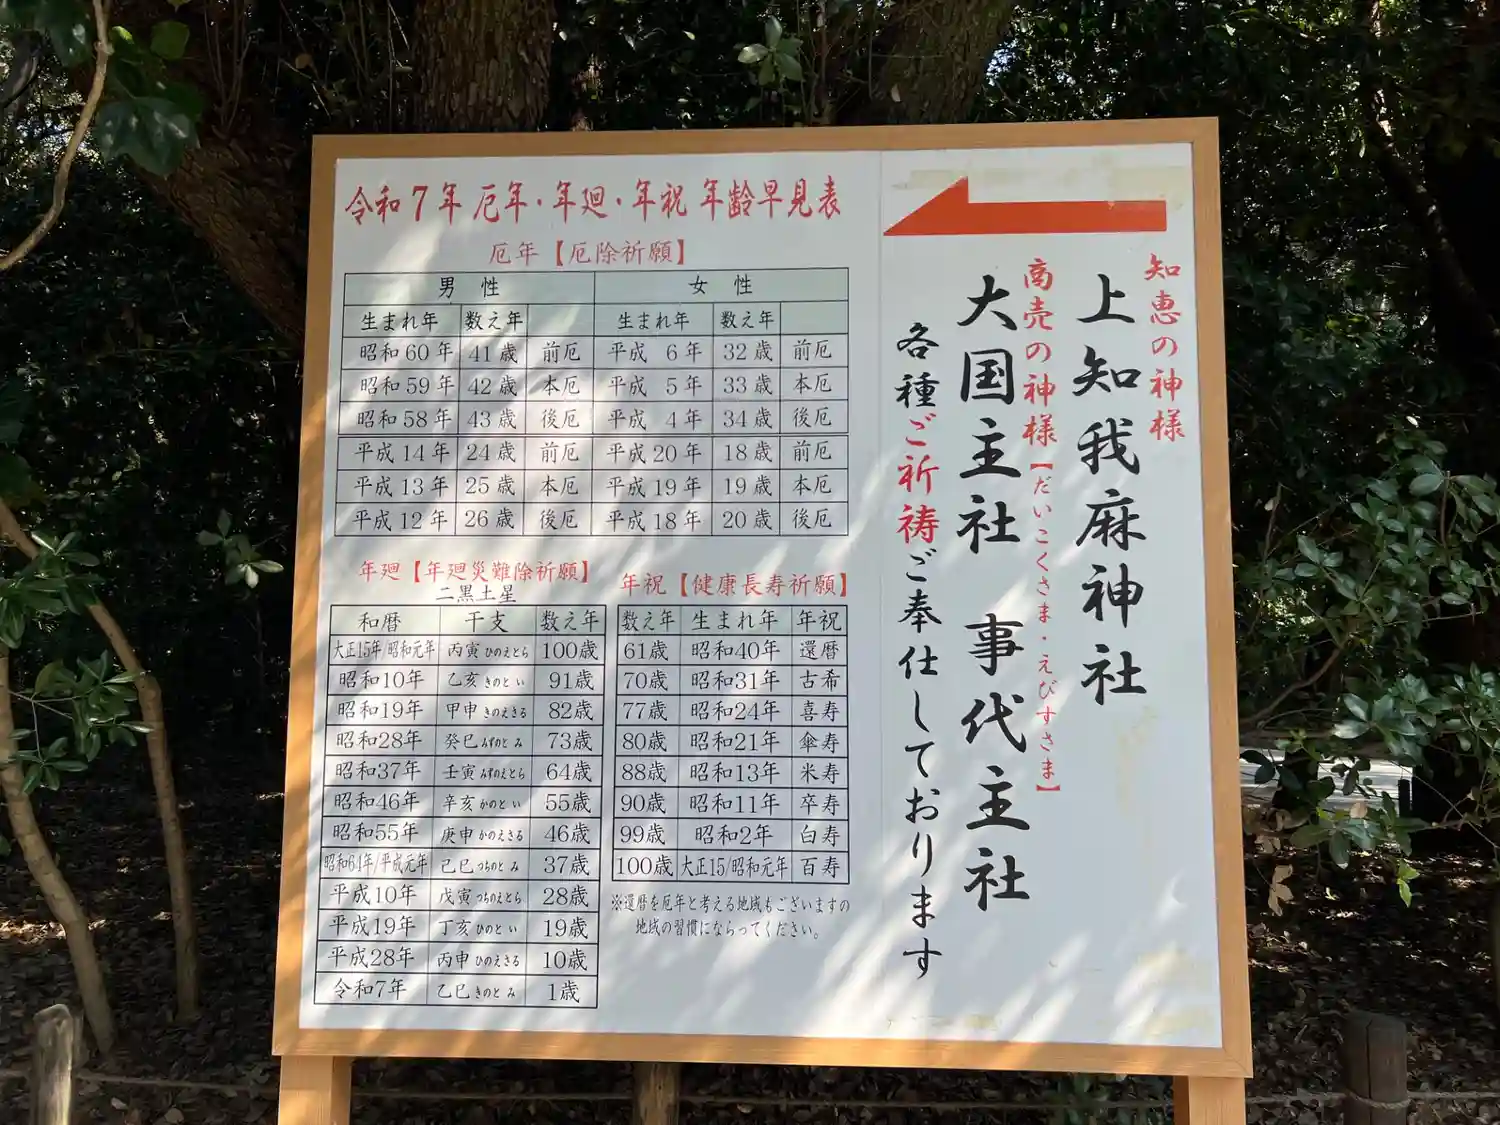 令和7年 厄年・年廻・年祝 年齢早見表
厄年【厄除祈願】
男性 女性
生まれ年 数え年 生まれ年 数え年
昭和60年 41歳 前厄 平成 6年 32歳 前厄
昭和59年 42歳 本厄 平成 5年 33歳 本厄
昭和58年 43歳 後厄 平成 4年 34歳 後厄
平成14年 24歳 前厄 平成20年 18歳 前厄
平成13年 25歳 本厄 平成19年 19歳 本厄
平成12年 26歳 後厄 平成18年 20歳 後厄
年廻【年廻災難除祈願】
二黒土星
和暦 干支 数え年
大正15年/昭和元年 丙寅 ひのえとら 100歳
昭和10年 乙亥 きのとい 91歳
昭和19年 甲申 きのえさる 82歳
昭和28年 癸巳 みずのとみ 73歳
昭和37年 壬寅 みずのえとら 64歳
昭和46年 辛亥 かのとい 55歳
昭和55年 庚申 かのえさる 46歳
昭和64年/平成元年 己巳 つちのとみ 37歳
平成10年 戊寅 つちのえとら 28歳
平成19年 丁亥 ひのとい 19歳
平成28年 丙申 ひのえさる 10歳
令和7年 乙巳 きのとみ 1歳
年祝【健康長寿祈願】
数え年 生まれ年 年祝
61歳 昭和40年 還暦
70歳 昭和31年 古希
77歳 昭和24年 喜寿
80歳 昭和21年 傘寿
88歳 昭和13年 米寿
90歳 昭和11年 卒寿
99歳 昭和2年 白寿
100歳 大正15/昭和元年 百寿
※還暦を厄年と考える地域もございますの
地域の習慣にならってください。
知恵の神様
上知我麻神社
商売の神様【だいこくさま・えびすさま】
大国主社 事代主社
各種ご祈祷ご奉仕しております